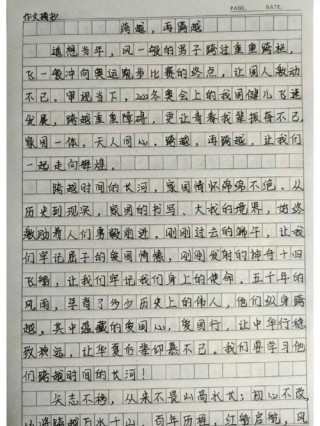 PAGE. DATE.
作文摘抄
跨越，再跨越
遥想当年，风一般的男子跨过重重跨栏，
飞一般冲向奥运跑步比赛的终点，让国人激动
不已。审视当下，2022冬奥会上的我国健儿飞速
发展，跨越重重障碍，更让青春我辈振奋不已。
家国一体，天人同心，跨越，再跨越，让我们
一起走向辉煌。
跨越时间的长河，家国情怀绵绵不绝。从
历史到现实，家国的书写、大我的境界，始终
激励着人们勇毅前进，刚刚过去的端午，让我
们牢记屈子的爱国情怀，刚刚发射的神舟十四
飞船，让我们牢记我们身上的使命。五千年的
风雨，孕育了多少历史上的伟人，他们纵身跨
越，其中蕴藏的爱国心，爱国行，让中华行稳
致独远，让华夏后辈仰慕不已。我们要学习他
们跨越时间的长河！
矢志不移，从来不畏山高水长；初心不改，
跨越万水千山，百年历程，红船启航，风